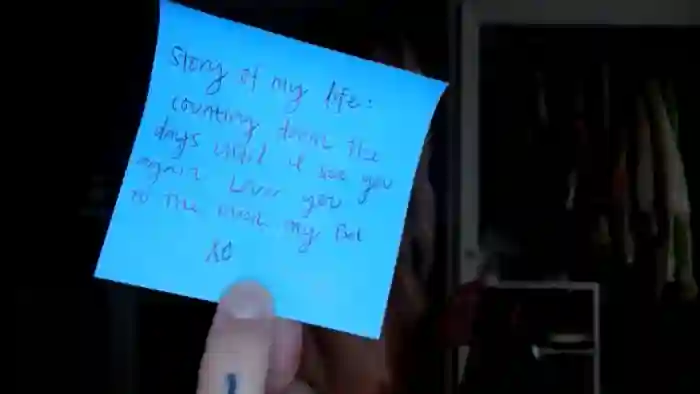 Story of my life:
counting down the
days until I see you
again. Love you
to the moon my Bel
XO